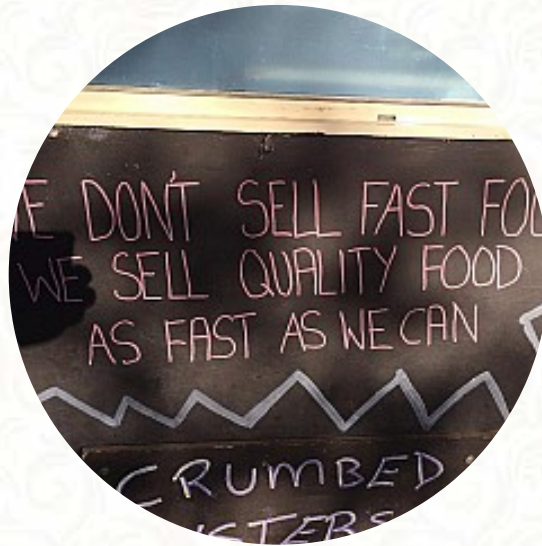 DON'T SELL FAST
WE SELL QUALITY FOOD
AS FAST AS WE CAN
CRUMBED